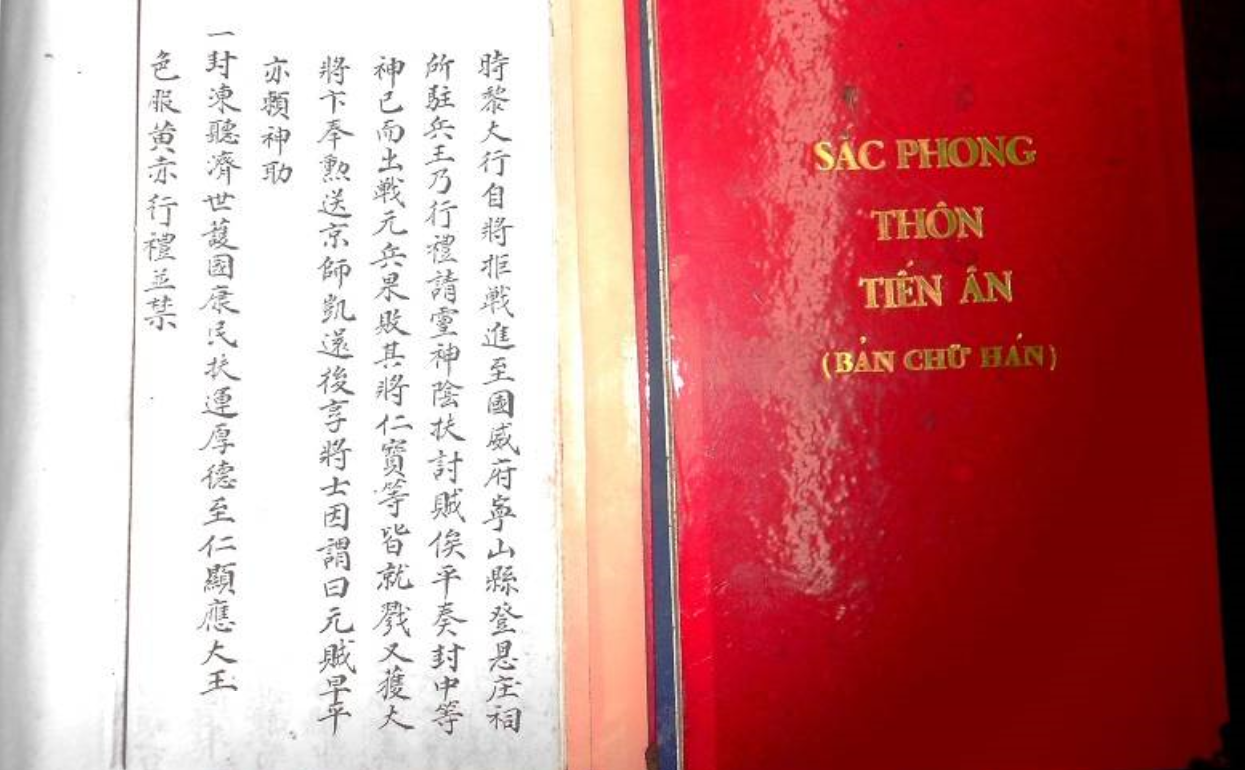 時黎大行自將拒戰進至國威府寧山縣登恳庄祠
所駐兵王乃行禮請靈神陰扶討賊俟平奏封中等
神已而出戰元兵果敗其將仁寶等皆就戮又獲大
將卞奉勲送京師凱還後享將士因謂曰元賊早平
亦頼神助
一封凍聽濟世護國康民扶運厚德至仁顯應大王
色服黄赤行禮並禁
SẮC PHONG
THÔN
TIẾN ÂN
(BẢN CHỮ HÁN)